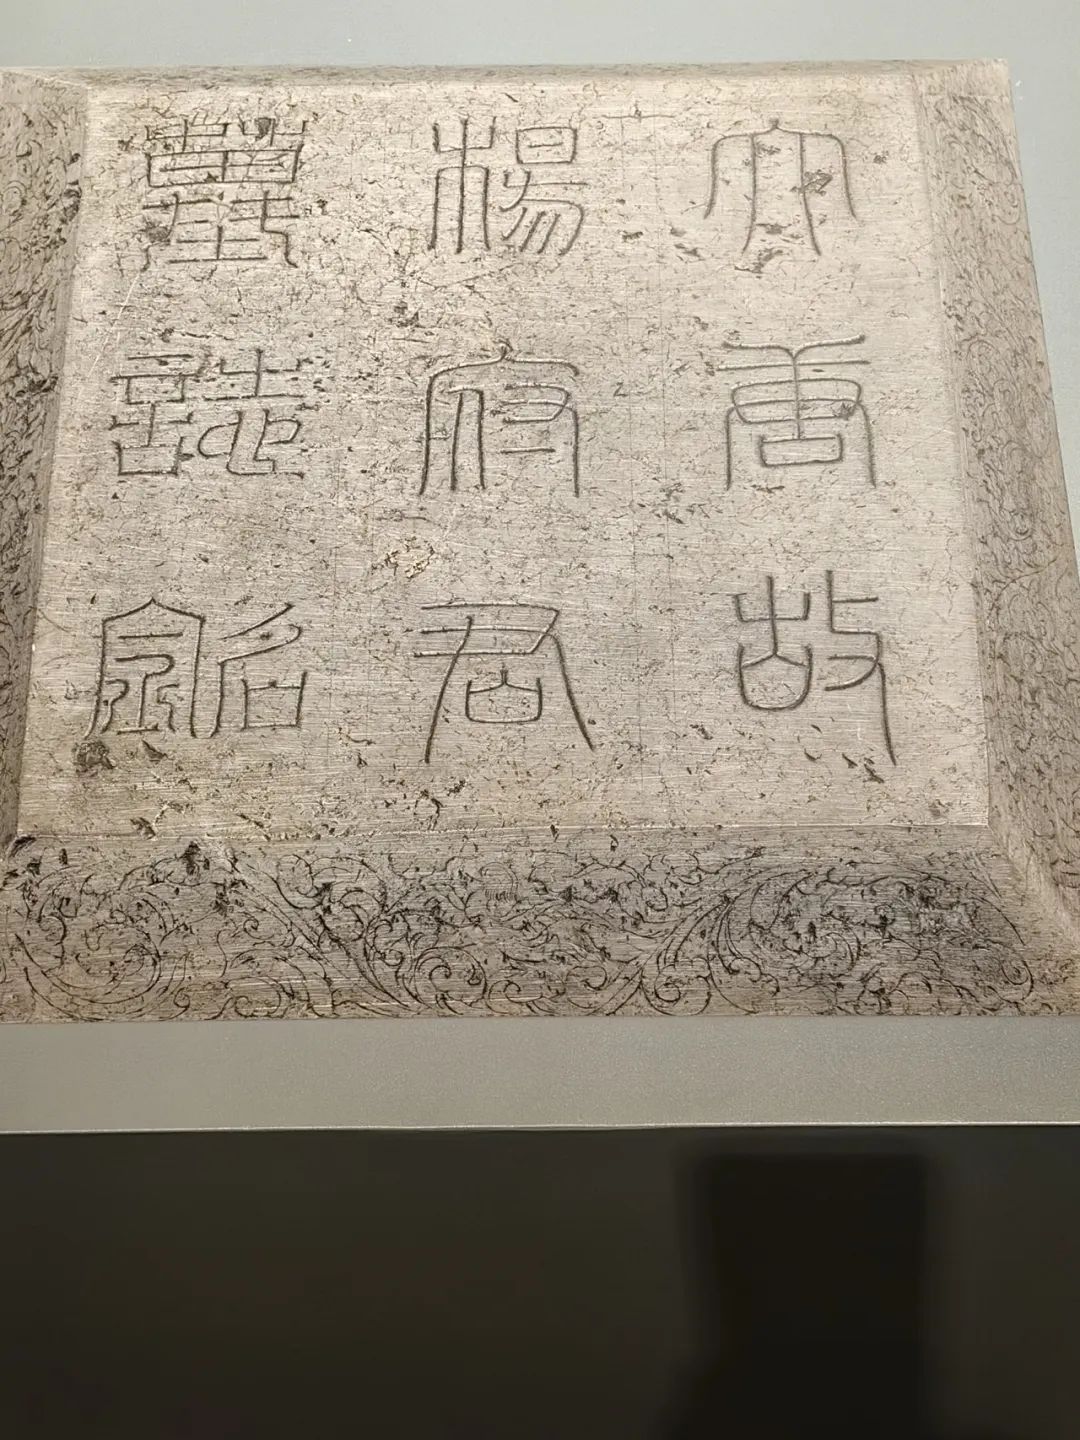 大唐故
楊府君
墓誌銘